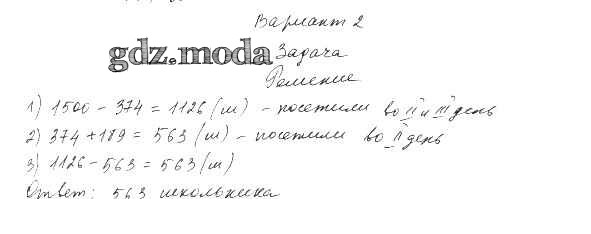 Вариант 2
gdz.moda Задача
Решение
1) 1500 - 374 = 1126 (ш) - посетили во II и III день
2) 374 + 189 = 563 (ш) - посетили во II день
3) 1126 - 563 = 563 (ш)
Ответ: 563 школьника